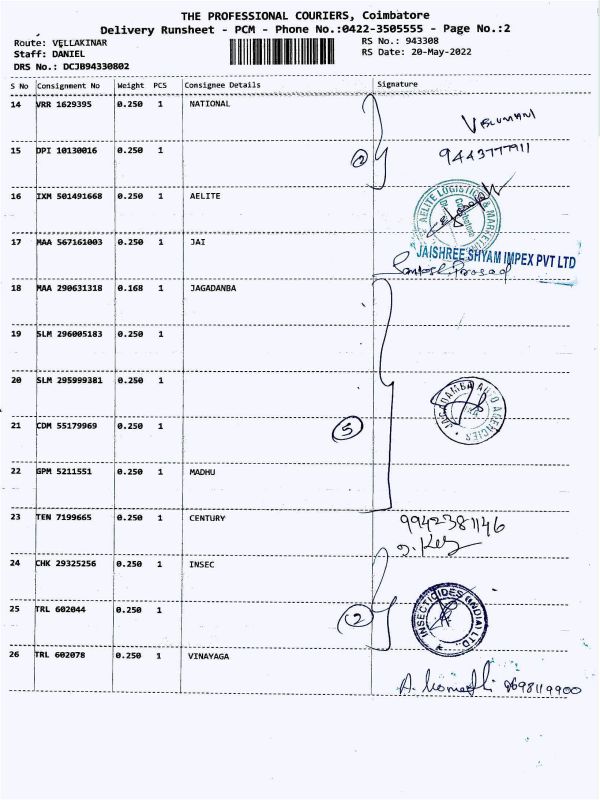 THE PROFESSIONAL COURIERS, Coimbatore
Delivery Runsheet - PCM - Phone No.:0422-3505555 - Page No.:2
Route: VELLAKINAR
Staff: DANIEL
DRS No.: DCJB94330802
RS No.: 943308
RS Date: 20-May-2022
S No Consignment No Weight PCS Consignee Details Signature
14 VRR 1629395 0.250 1 NATIONAL
VELUMANI
15 DPI 10130016 0.250 1
2
9443777911
16 IXM 501491668 0.250 1 AELITE
AELITE LOGISTICS & MARKETING
Coimbatore
17 MAA 567161003 0.250 1 JAI
JAISHREE SHYAM IMPEX PVT LTD
Santosh Prasad
18 MAA 290631318 0.168 1 JAGADANBA
19 SLM 296005183 0.250 1
20 SLM 295999381 0.250 1
JAGADAMBA AUTO AGENCIES
21 CDM 55179969 0.250 1
5
22 GPM 5211551 0.250 1 MADHU
23 TEN 7199665 0.250 1 CENTURY
9942381146
24 CHK 29325256 0.250 1 INSEC
25 TRL 602044 0.250 1
2
INSECTICIDES (INDIA) LTD
26 TRL 602078 0.250 1 VINAYAGA
A. Komathi 8698119900